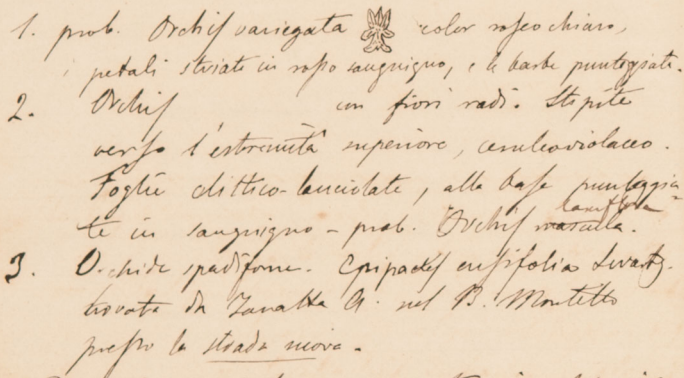 1. prob. Orchis variegata color roseo chiaro,
i petali striati in rosso sanguigno, e le barbe punteggiate.
2. Orchis con fiori radi. Stipite
verso l'estremità superiore, ceruleoviolaceo.
Foglie elittico-lanciolate, alla base punteggia-
te in sanguigno - prob. Orchis laxiflora mascula.
3. Orchide spadiforme. Epipactis ensifolia Swartz.
trovata da A. nel B. Montello
presso la strada nuova.